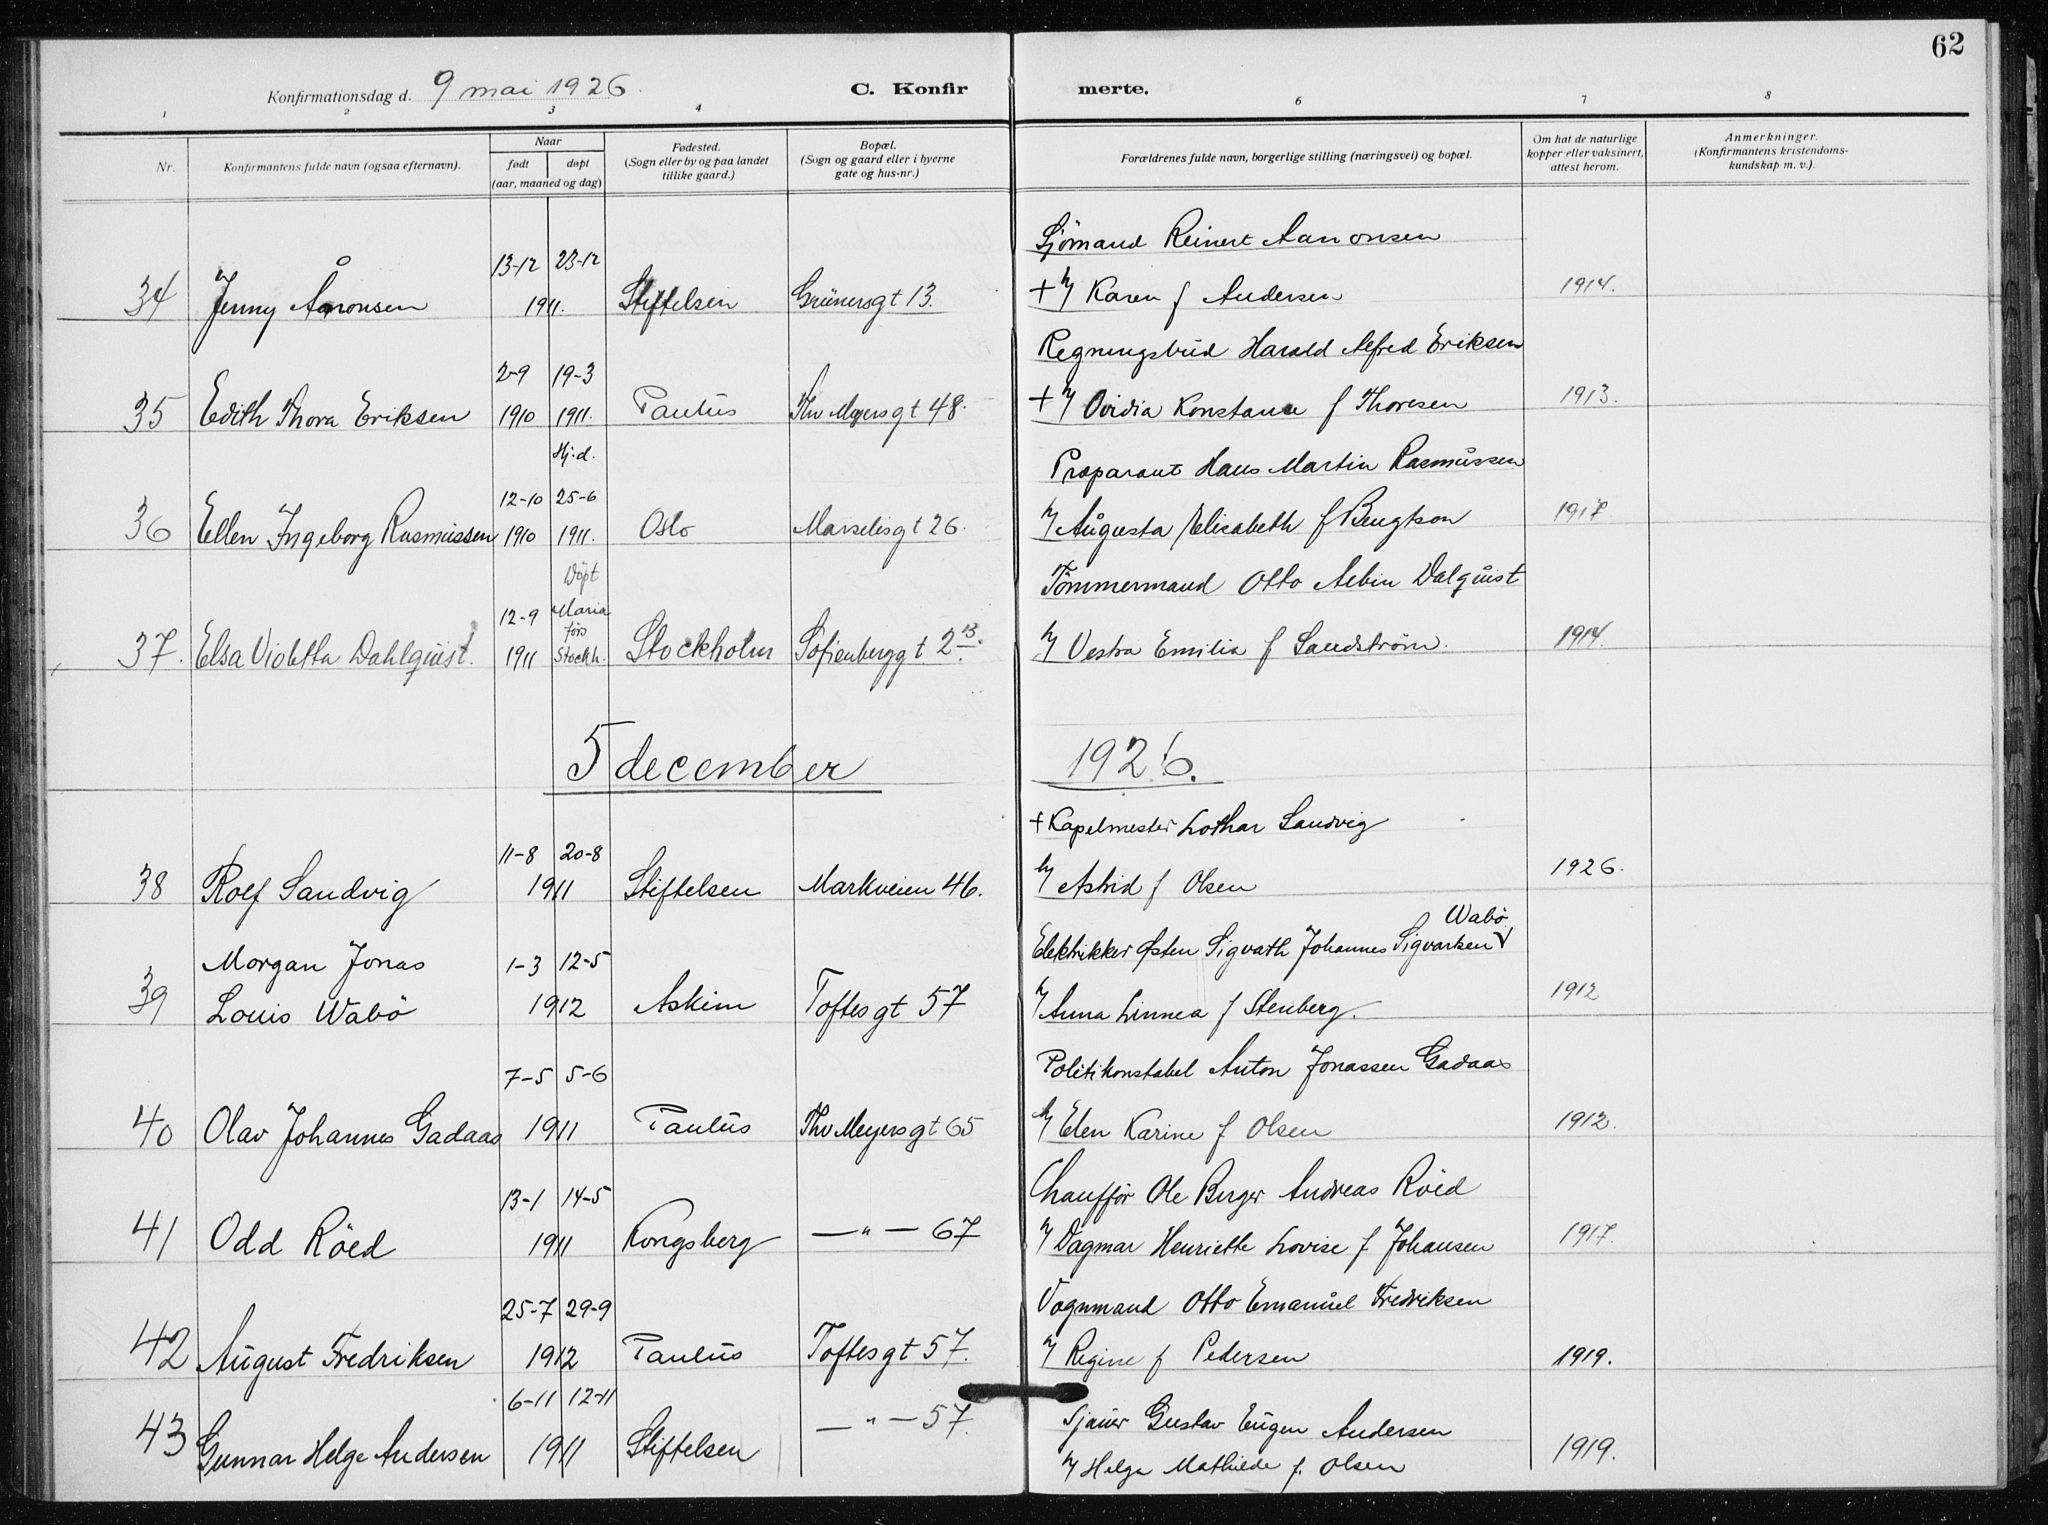 62
Konfirmationsdag d. 9 mai 1926. C. Konfirmerte.
1 2 3 4 5 6 7 8
Nr. Konfirmantens fulde navn (ogsaa efternavn). Naar født døpt (aar, maaned og dag) Fødested. (Sogn eller by og paa landet tillike gaard.) Bopæl. (Sogn og gaard eller i byerne gate og hus-nr.) Forældrenes fulde navn, borgerlige stilling (næringsvei) og bopæl. Om hat de naturlige kopper eller vaksinert, attest herom. Anmerkninger. (Konfirmantens kristendomskundskap m. v.).
13-12 23-12 Sjömand Reinert Aanonsen
34 Jenny Åanonsen 1911. Stiftelsen Grünersgt 13. + h/ Karen f Andersen 1914.
2-9 19-3 Regningsbud Harald Alfred Eriksen
35 Edith Thora Eriksen 1910 1911. Paulus Thv Meyersgt 48. + h/ Ovidia Konstance f Thoresen 1913.
Hj.d.
12-10 25-6 Præparant Hans Martin Rasmussen
36 Ellen Ingeborg Rasmussen 1910 1911. Oslo Marselisgt 26. h/ Augusta Elisabeth f Bengtson
Döpt
12-9 Maria förs Tömmermand Otto Albin Dalquist
37. Elsa Violetta Dahlquist. 1911 Stockh. Stockholm Sofienberggt 2 13. h/ Vestra Emilia f Sandström. 1914.
5 december 1926.
11-8 20-8 + Kapelmester Lothar Sandvig
38 Rolf Sandvig 1911 Stiftelsen Markveien 46. h/ Astrid f Olsen 1926.
Morgan Jonas 1-3 12-5 Elektrikker Østen Sigvath Johannes Sigvartsen Wabö
39 Louis Wabö 1912 Askim Toftesgt 57 h/ Anna Linnea f Stenberg. 1912
7-5 5-6 Politikonstabel Anton Jonassen Gadaas
40 Olav Johannes Gadaas 1911 Paulus Thv Meyersgt 65 h/ Elen Karine f Olsen 1912.
13-1 14-5 Chauffør Ole Birger Andreas Röed
41 Odd Röed 1911 Kongsberg — " — 67 h/ Dagmar Henriette Lovise f Johansen 1917.
25-7 29-9 Vognmand Otto Emanuel Fredriksen
42 August Fredriksen 1912 Paulus Toftesgt 57. h/ Regine f Pedersen 1919.
6-11 12-11 Sjauer Gustav Eugen Andersen
43 Gunnar Helge Andersen 1911 Stiftelsen — " — 57. h/ Helga Mathilde f. Olsen 1919.